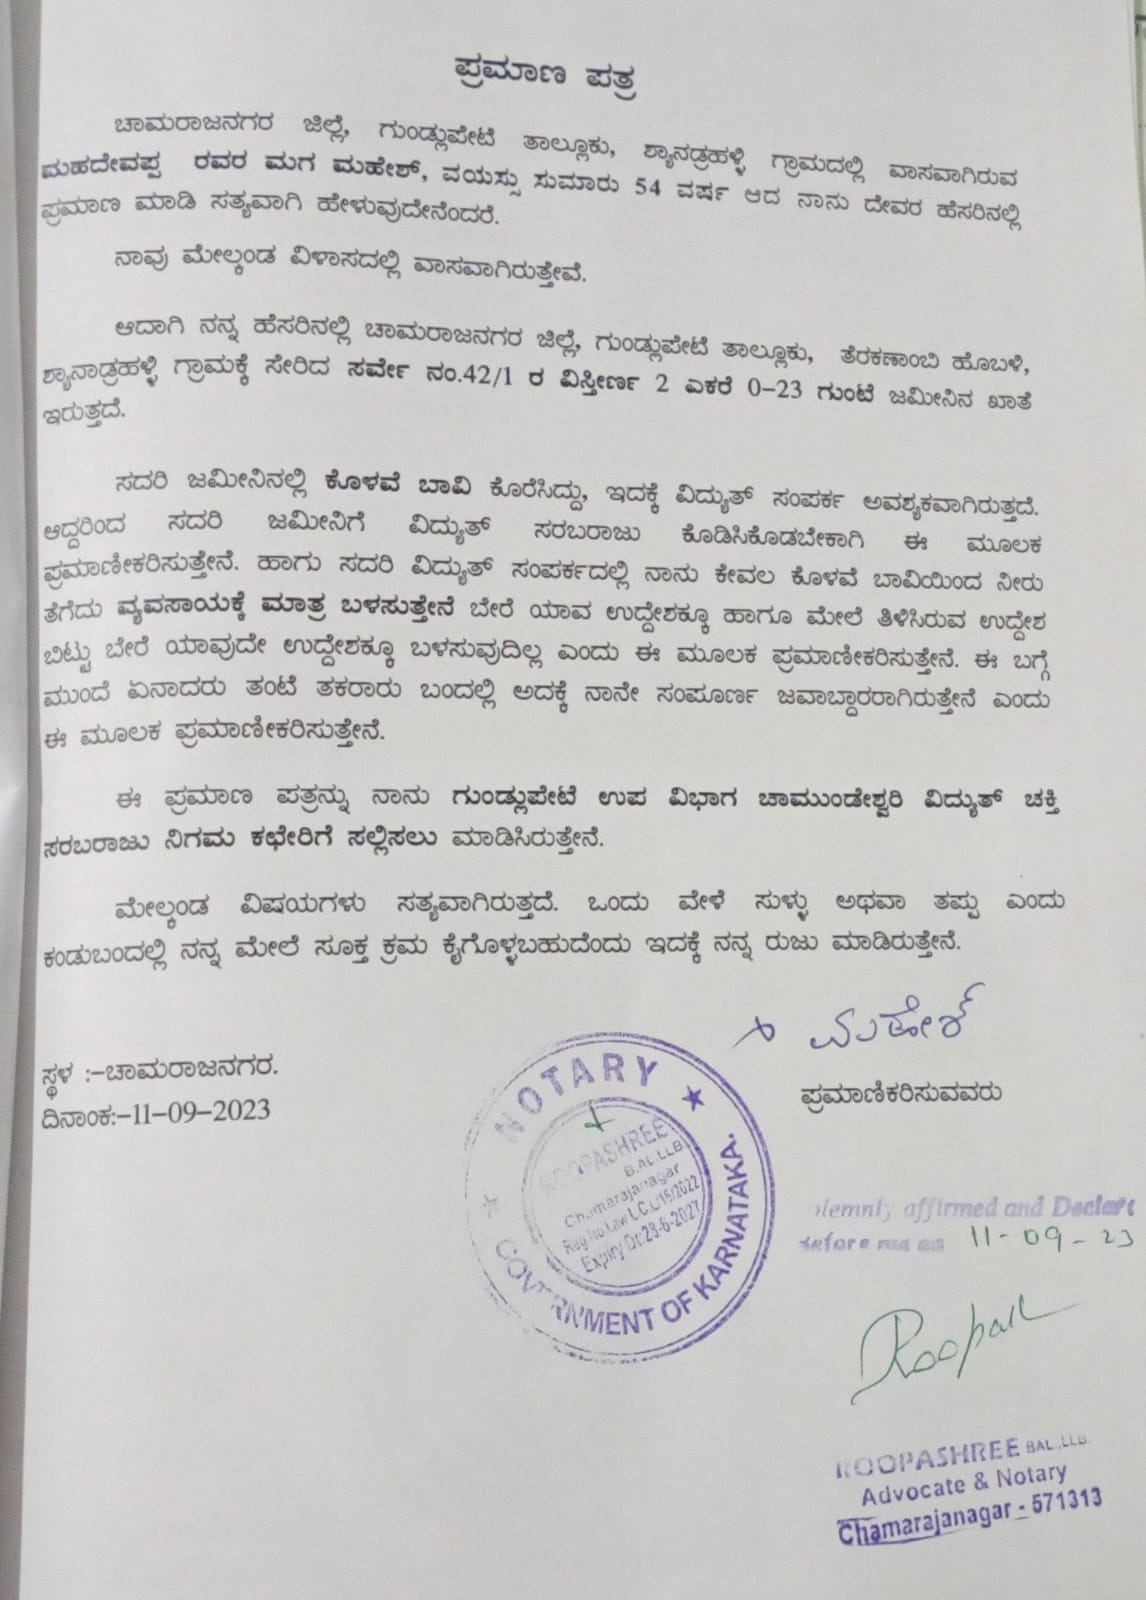 ಪ್ರಮಾಣ ಪತ್ರ
ಚಾಮರಾಜನಗರ ಜಿಲ್ಲೆ, ಗುಂಡ್ಲುಪೇಟೆ ತಾಲ್ಲೂಕು, ಶ್ಯಾನಡ್ರಹಳ್ಳಿ ಗ್ರಾಮದಲ್ಲಿ ವಾಸವಾಗಿರುವ
ಮಹದೇವಪ್ಪ ರವರ ಮಗ ಮಹೇಶ್, ವಯಸ್ಸು ಸುಮಾರು 54 ವರ್ಷ ಆದ ನಾನು ದೇವರ ಹೆಸರಿನಲ್ಲಿ
ಪ್ರಮಾಣ ಮಾಡಿ ಸತ್ಯವಾಗಿ ಹೇಳುವುದೇನೆಂದರೆ.
ನಾವು ಮೇಲ್ಕಂಡ ವಿಳಾಸದಲ್ಲಿ ವಾಸವಾಗಿರುತ್ತೇವೆ.
ಆದಾಗಿ ನನ್ನ ಹೆಸರಿನಲ್ಲಿ ಚಾಮರಾಜನಗರ ಜಿಲ್ಲೆ, ಗುಂಡ್ಲುಪೇಟೆ ತಾಲ್ಲೂಕು, ತೆರಕಣಾಂಬಿ ಹೊಬಳಿ,
ಶ್ಯಾನಾಡ್ರಹಳ್ಳಿ ಗ್ರಾಮಕ್ಕೆ ಸೇರಿದ ಸರ್ವೇ ನಂ.42/1 ರ ವಿಸ್ತೀರ್ಣ 2 ಎಕರೆ 0-23 ಗುಂಟೆ ಜಮೀನಿನ ಖಾತೆ
ಇರುತ್ತದೆ.
ಸದರಿ ಜಮೀನಿನಲ್ಲಿ ಕೊಳವೆ ಬಾವಿ ಕೊರೆಸಿದ್ದು, ಇದಕ್ಕೆ ವಿದ್ಯುತ್ ಸಂಪರ್ಕ ಅವಶ್ಯಕವಾಗಿರುತ್ತದೆ.
ಆದ್ದರಿಂದ ಸದರಿ ಜಮೀನಿಗೆ ವಿದ್ಯುತ್ ಸರಬರಾಜು ಕೊಡಿಸಿಕೊಡಬೇಕಾಗಿ ಈ ಮೂಲಕ
ಪ್ರಮಾಣೀಕರಿಸುತ್ತೇನೆ. ಹಾಗು ಸದರಿ ವಿದ್ಯುತ್ ಸಂಪರ್ಕದಲ್ಲಿ ನಾನು ಕೇವಲ ಕೊಳವೆ ಬಾವಿಯಿಂದ ನೀರು
ತೆಗೆದು ವ್ಯವಸಾಯಕ್ಕೆ ಮಾತ್ರ ಬಳಸುತ್ತೇನೆ ಬೇರೆ ಯಾವ ಉದ್ದೇಶಕ್ಕೂ ಹಾಗೂ ಮೇಲೆ ತಿಳಿಸಿರುವ ಉದ್ದೇಶ
ಬಿಟ್ಟು ಬೇರೆ ಯಾವುದೇ ಉದ್ದೇಶಕ್ಕೂ ಬಳಸುವುದಿಲ್ಲ ಎಂದು ಈ ಮೂಲಕ ಪ್ರಮಾಣೀಕರಿಸುತ್ತೇನೆ. ಈ ಬಗ್ಗೆ
ಮುಂದೆ ಏನಾದರು ತಂಟೆ ತಕರಾರು ಬಂದಲ್ಲಿ ಅದಕ್ಕೆ ನಾನೇ ಸಂಪೂರ್ಣ ಜವಾಬ್ದಾರರಾಗಿರುತ್ತೇನೆ ಎಂದು
ಈ ಮೂಲಕ ಪ್ರಮಾಣೀಕರಿಸುತ್ತೇನೆ.
ಈ ಪ್ರಮಾಣ ಪತ್ರನ್ನು ನಾನು ಗುಂಡ್ಲುಪೇಟೆ ಉಪ ವಿಭಾಗ ಚಾಮುಂಡೇಶ್ವರಿ ವಿದ್ಯುತ್ ಚಕ್ತಿ
ಸರಬರಾಜು ನಿಗಮ ಕಛೇರಿಗೆ ಸಲ್ಲಿಸಲು ಮಾಡಿಸಿರುತ್ತೇನೆ.
ಮೇಲ್ಕಂಡ ವಿಷಯಗಳು ಸತ್ಯವಾಗಿರುತ್ತದೆ. ಒಂದು ವೇಳೆ ಸುಳ್ಳು ಅಥವಾ ತಪ್ಪು ಎಂದು
ಕಂಡುಬಂದಲ್ಲಿ ನನ್ನ ಮೇಲೆ ಸೂಕ್ತ ಕ್ರಮ ಕೈಗೊಳ್ಳಬಹುದೆಂದು ಇದಕ್ಕೆ ನನ್ನ ರುಜು ಮಾಡಿರುತ್ತೇನೆ.
ಮಹೇಶ್
ಸ್ಥಳ :-ಚಾಮರಾಜನಗರ.
ಪ್ರಮಾಣಿಕರಿಸುವವರು
ದಿನಾಂಕ:-11-09-2023
NOTARY
ROOPASHREE
B.AL.LLB
Chamarajanagar
Reg.No.Law/L.C.L/15/2022
Expiry Dt:23-6-2027
GOVERNMENT OF KARNATAKA.
olemnly affirmed and Declare
before me on 11-09-23
ROOPASHREE BAL.,LLB.
Advocate & Notary
Chamarajanagar - 571313